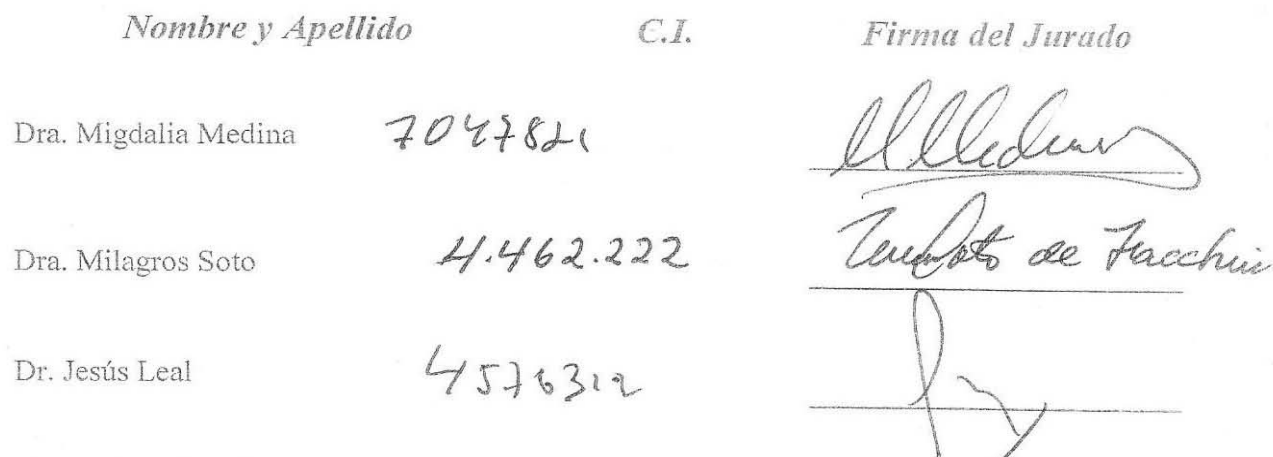 Nombre y Apellido C.I. Firma del Jurado
Dra. Migdalia Medina 7047821
Dra. Milagros Soto 4.462.222 Soto de
Dr. Jesús Leal 4576312